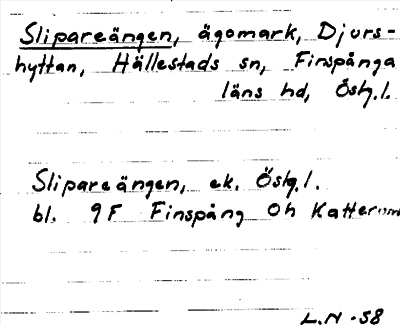 Slipareängen, ägomark, Djurs-
hyttan, Hällestads sn, Finspånga
läns hd, Östg.l.
Slipareängen, ek. Östg.l.
bl. 9F Finspång Oh
L.N -58